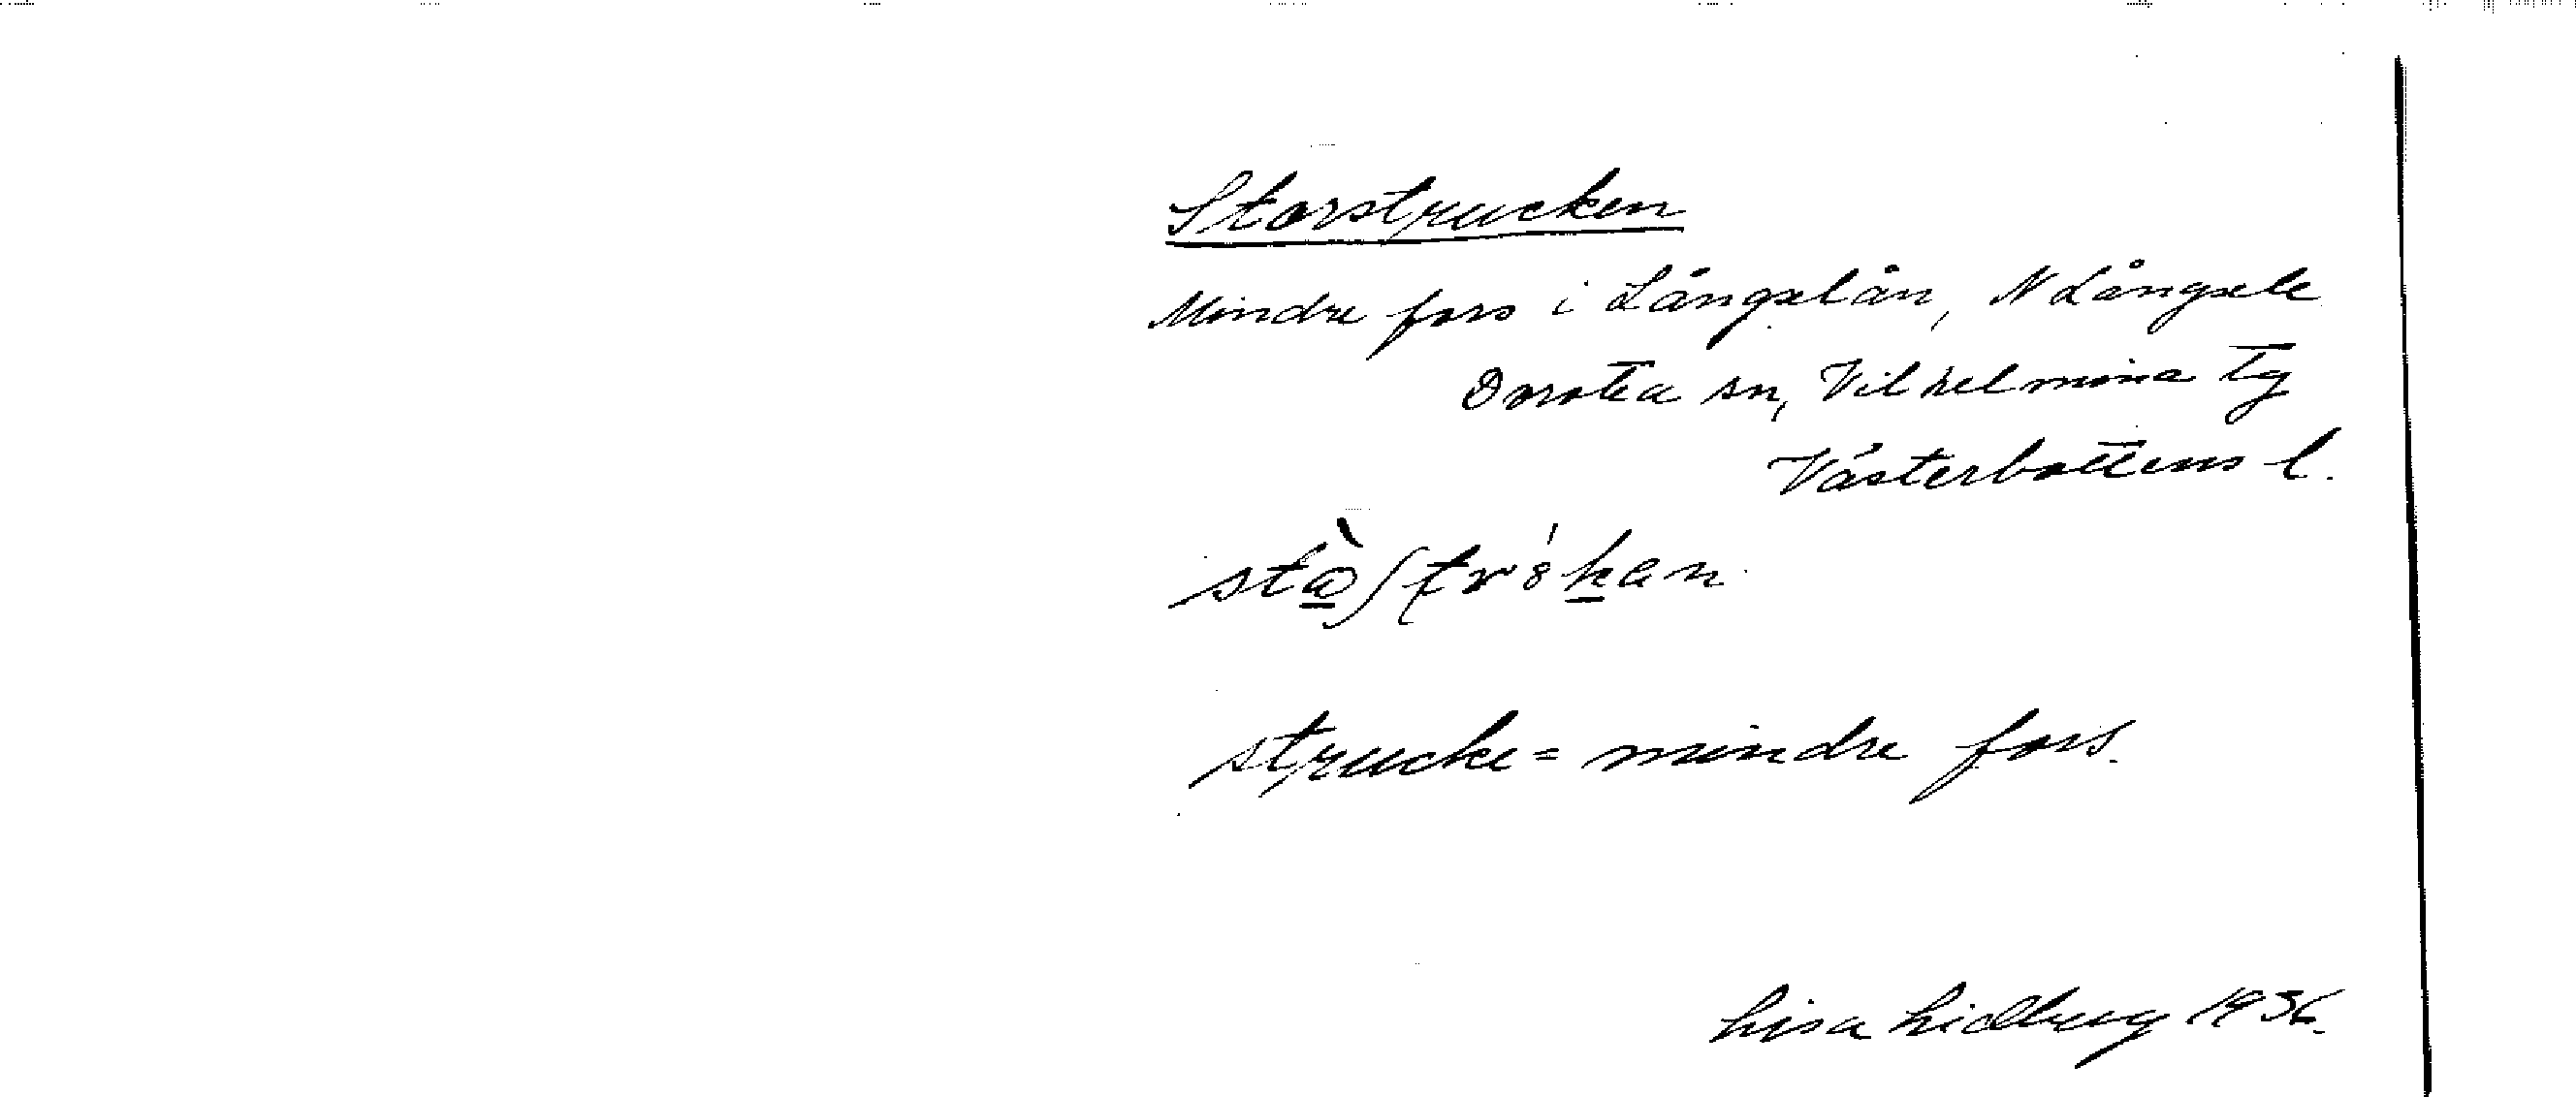 Storstrucken
Mindre fors i Långselån, N Långsele
Dorotea sn, Vilhelmina tg
Västerbottens l.
strucke = mindre fors.
Lisa Lidberg 1936.